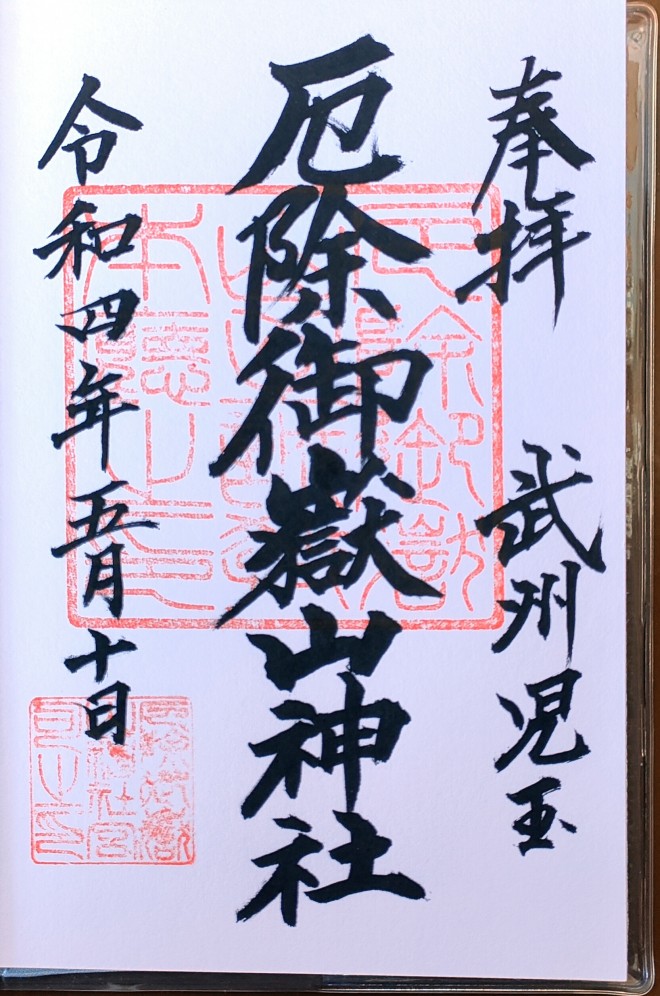 奉拝 武州児玉
厄除御嶽山神社
令和四年五月十日